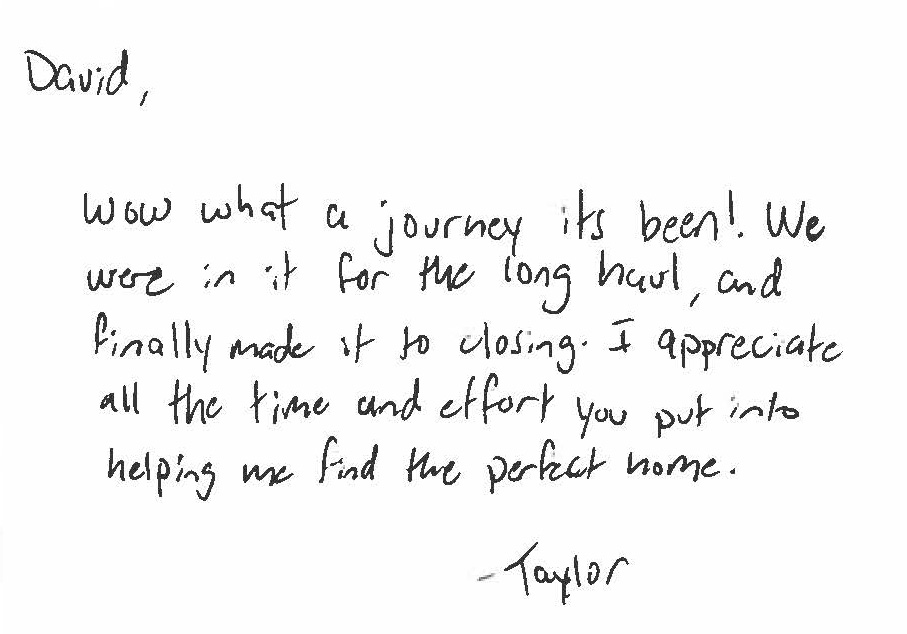 David,
Wow what a journey its been! We
were in it for the long haul, and
finally made it to closing. I appreciate
all the time and effort you put into
helping me find the perfect home.
-Taylor